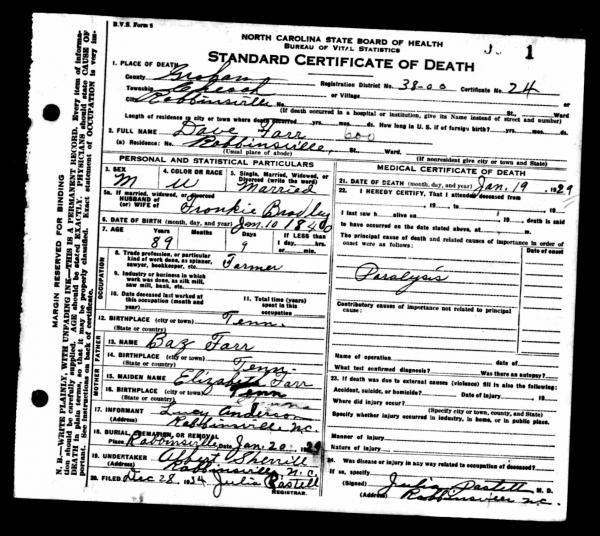 B.V.S. Form 5
NORTH CAROLINA STATE BOARD OF HEALTH
BUREAU OF VITAL STATISTICS
1
STANDARD CERTIFICATE OF DEATH
1. PLACE OF DEATH
County Graham Registration District No. 38-00 Certificate No. 24
Township Cheoah or Village or
Robbinsville No. St., Ward
(If death occurred in a hospital or institution, give its Name instead of street and number)
Length of residence in city or town where death occurred yrs. mos. ds. How long in U. S. if of foreign birth? yrs. mos. ds.
2. FULL NAME Dave Farr 600
(a) Residence: No. Robbinsville, St., Ward.
(Usual place of abode) (If nonresident give city or town and State)
PERSONAL AND STATISTICAL PARTICULARS
3. SEX 4. COLOR OR RACE 5. Single, Married, Widowed, or Divorced (write the word)
M W Married
5a. If married, widowed, or divorced
HUSBAND of
(or) WIFE of Fronkie Bradley
6. DATE OF BIRTH (month, day, and year) Jan. 10 1840
7. AGE Years Months Days If LESS than 1 day, hrs. or min.
89 9
OCCUPATION
8. Trade, profession, or particular kind of work done, as spinner, sawyer, bookkeeper, etc. Farmer
9. Industry or business in which work was done, as silk mill, saw mill, bank, etc.
10. Date deceased last worked at this occupation (month and year)
11. Total time (years) spent in this occupation
12. BIRTHPLACE (city or town) Tenn.
(State or country)
FATHER
13. NAME Baz Farr
14. BIRTHPLACE (city or town) Tenn.
(State or country)
MOTHER
15. MAIDEN NAME Elizabeth Farr
16. BIRTHPLACE (city or town) Tenn
(State or country)
17. INFORMANT Lucy Anderson
(Address) Robbinsville N.C.
18. BURIAL, CREMATION, OR REMOVAL
Place Robbinsville Date Jan 20 1929
19. UNDERTAKER Sherrill
(Address) Robbinsville N.C.
20. FILED Dec 28, 1934 Julia
REGISTRAR.
MEDICAL CERTIFICATE OF DEATH
21. DATE OF DEATH (month, day, and year) Jan. 19 1929
22. I HEREBY CERTIFY, That I attended deceased from
, 19 , to , 19
I last saw h alive on , 19 , death is said
to have occurred on the date stated above, at m.
The principal cause of death and related causes of importance in order of onset were as follows: Date of onset
Paralysis
Contributory causes of importance not related to principal cause:
Name of operation date of
What test confirmed diagnosis? Was there an autopsy?
23. If death was due to external causes (violence) fill in also the following:
Accident, suicide, or homicide? Date of injury 19
Where did injury occur?
(Specify city or town, county, and State)
Specify whether injury occurred in industry, in home, or in public place.
Manner of injury
Nature of injury
24. Was disease or injury in any way related to occupation of deceased?
If so, specify
(Signed) Julia M. D.
(Address) Robbinsville N.C.
MARGIN RESERVED FOR BINDING
N. B.—WRITE PLAINLY, WITH UNFADING INK—THIS IS A PERMANENT RECORD. Every item of information should be carefully supplied. AGE should be stated EXACTLY. PHYSICIANS should state CAUSE OF DEATH in plain terms, so that it may be properly classified. Exact statement of OCCUPATION is very important. See instructions on back of certificate.